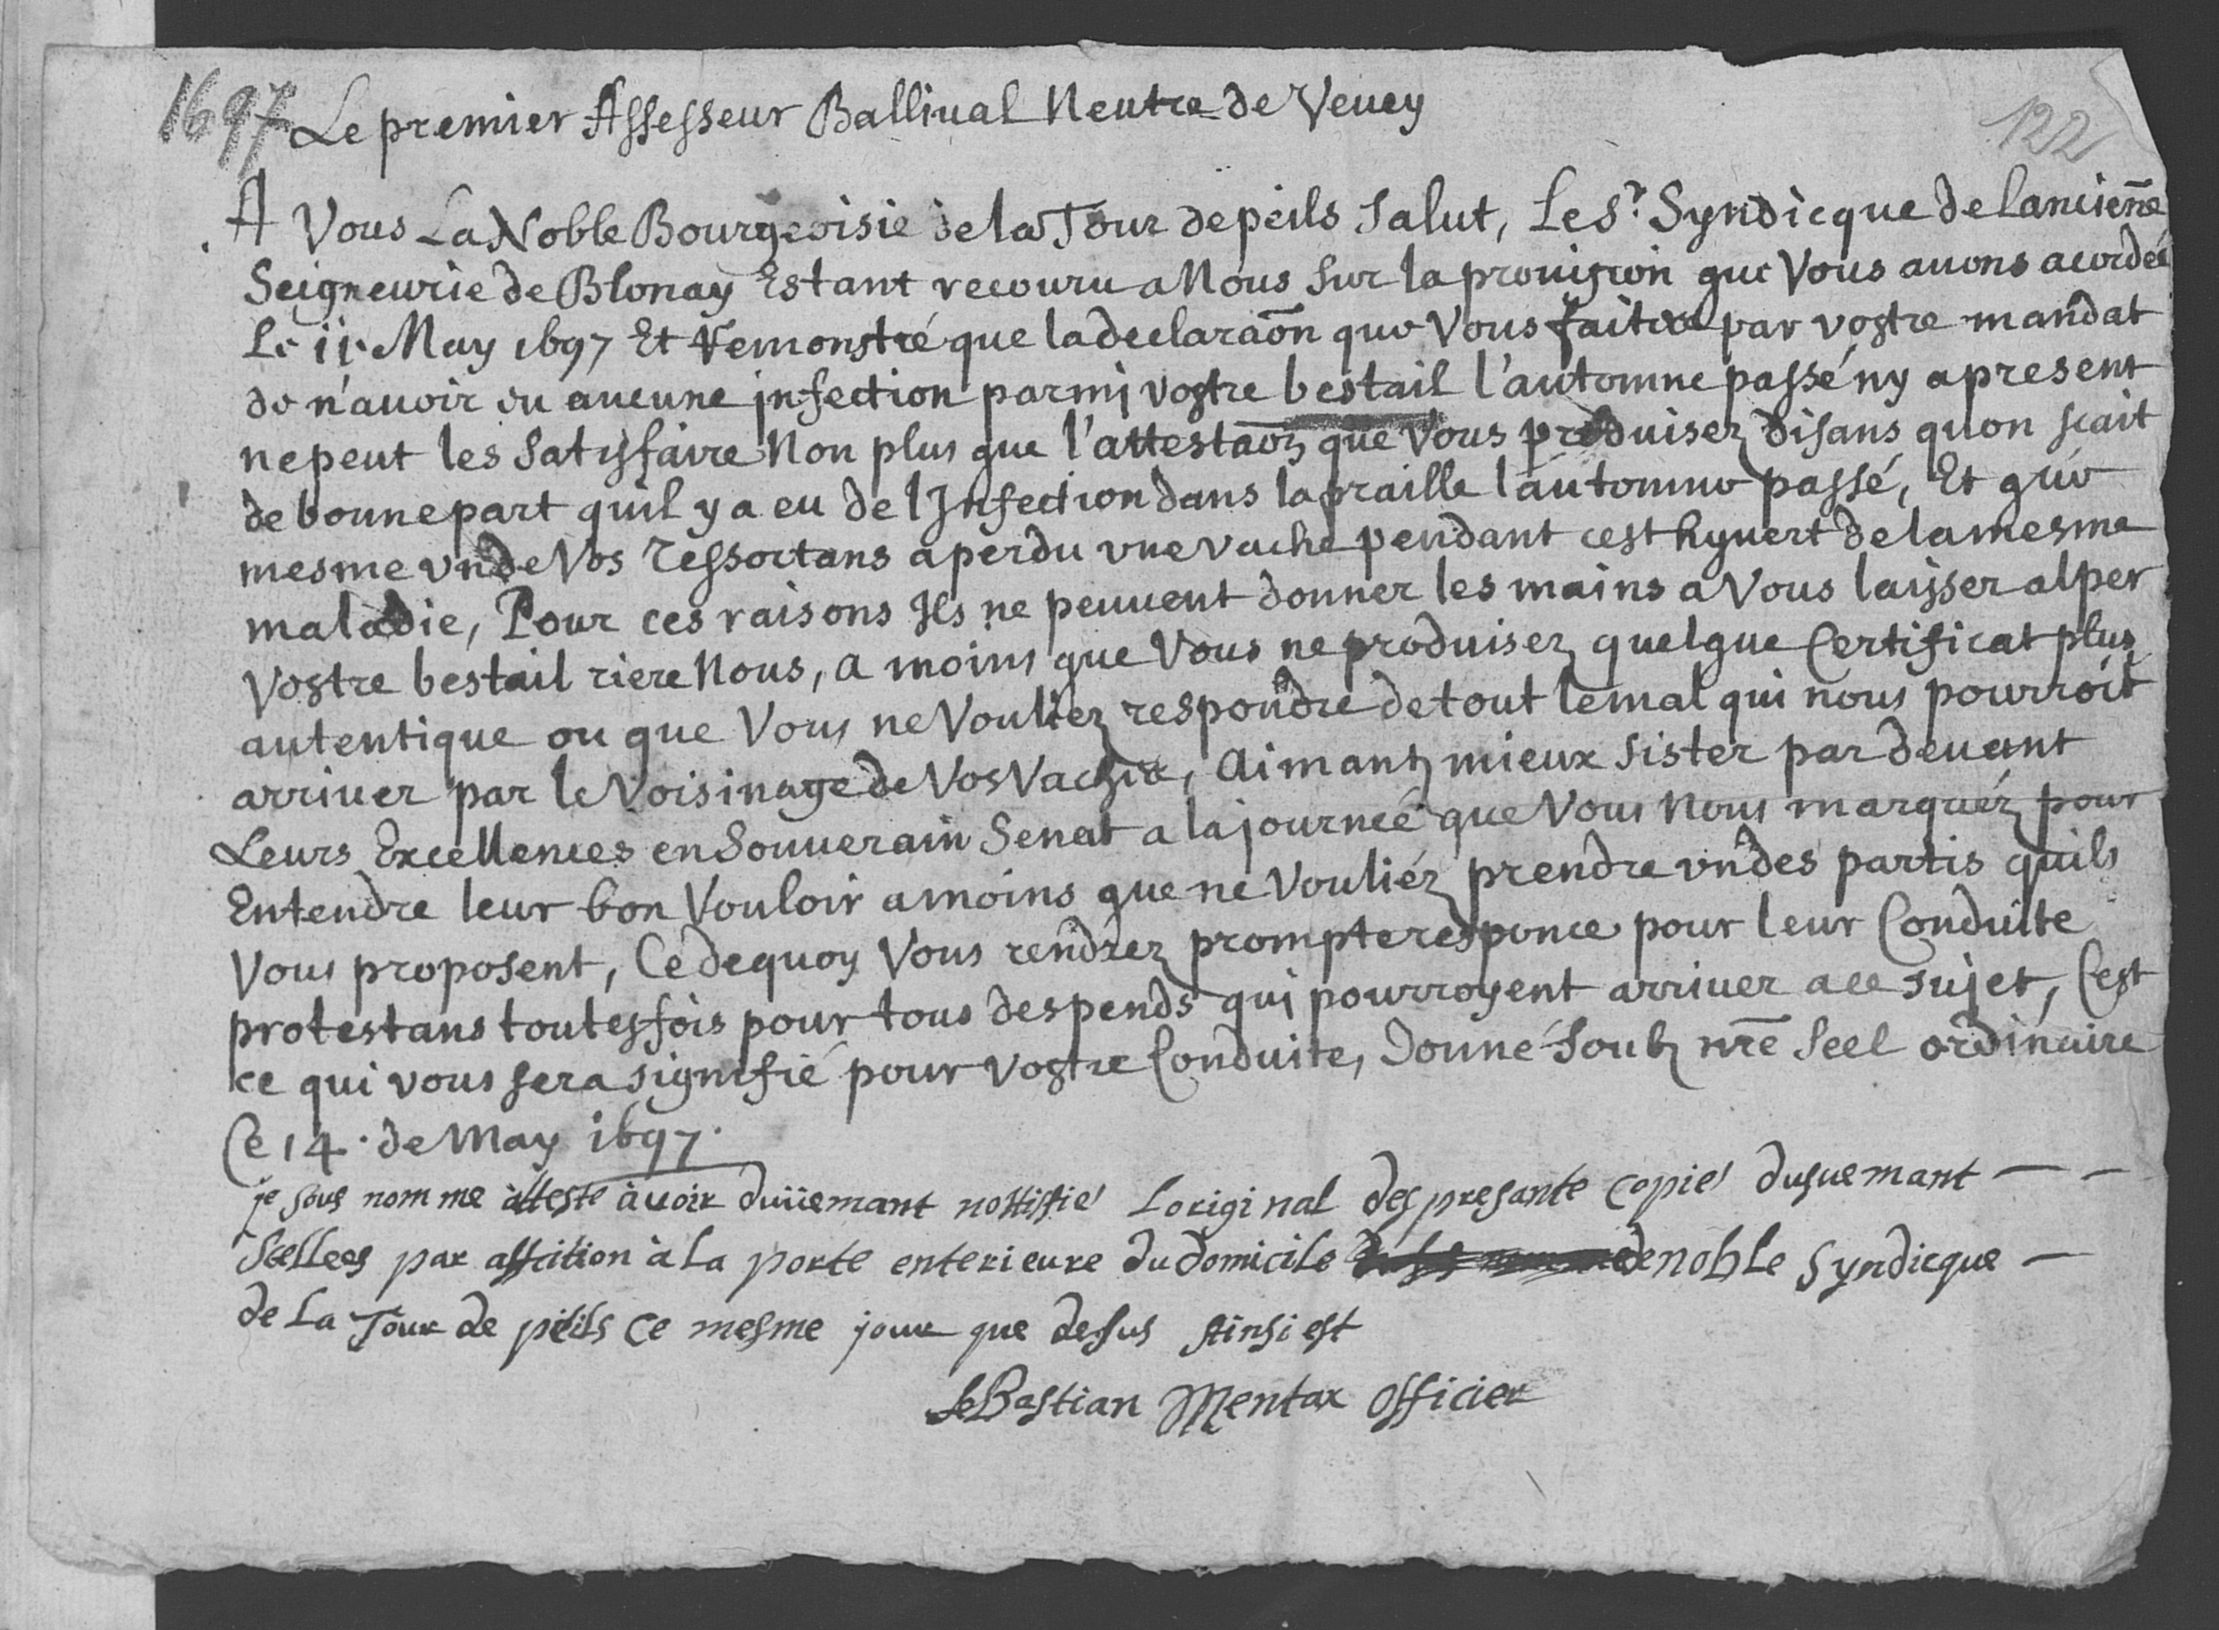 1697
122
Le premier Assesseur Balliual Neutre de Veuey
A Vous La Noble Bourgeoisie de la Tour de peils Salut, Le Sr. Syndicque de lancieñe
Seigneurie de Blonay Estant recouru a Nous sur la prouision que Vous auons acordée
Le 11e May 1697 Et remonstré que la declaraõn que Vous faites par vostre mandat
de n'auoir eu aucune jnfection parmj vostre bestail l'automne passé ny apresent
ne peut les satisfaire Non plus que l'attestaõn que Vous produisez disans quon scait
de bonne part quil y a eu de lJnfection dans la praille lautomne passé, Et que
mesme vn de Vos ressortans a perdu vne vache pendant cest hyuert de la mesme
maladie, Pour ces raisons Jls ne peuuent donner les mains a Vous laisser alper
Vostre bestail riere Nous, a moins que Vous ne produisez quelque Certificat plus
autentique ou que Vous ne Vouliez respondre de tout le mal qui nous pourroit
arriuer par le Voisinage de Vos Vaches, Aimantz mieux sister par deuant
Leurs Excellences en Souuerain Senat a la journeé que Vous Nous marquéz pour
Entendre leur bon Vouloir a moins que ne Vouliéz prendre vn des partis quils
Vous proposent, Ce dequoy Vous rendrez prompte responce pour leur Conduite
protestans toutesfois pour tous despends qui pourroyent arriuer a ce sujet, Cest
ce qui vous sera signifié pour vostre Conduite, Donné Soubz nr̃e Seel ordinaire
Ce 14. de May 1697.
je sous nomme atteste auoir duüemant nottiffié Loriginal des presante copie dusuemant
Scellees par affiction à La porte enterieure du domicile de nobLe Syndicque
de La Tour de peils Ce mesme jour que desus Ainsi est
SeBastian Mentax Officier